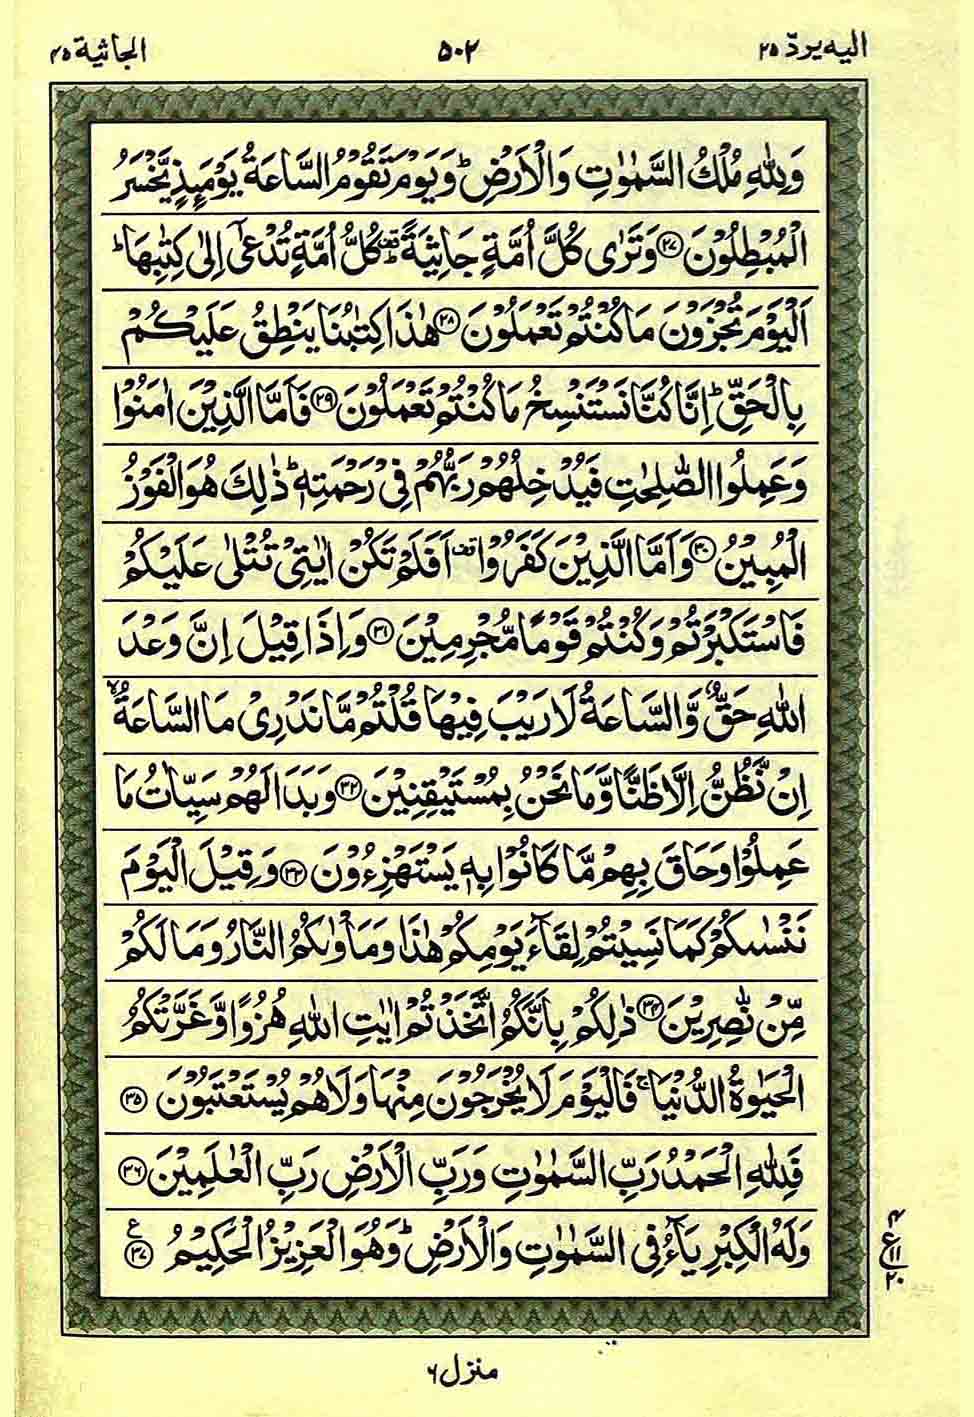 اليه يردّ ٢٥
٥٠٢
الجاثية ٤٥
وَلِلّٰهِ مُلْكُ السَّمٰوٰتِ وَالْاَرْضِ ؕ وَيَوْمَ تَقُوْمُ السَّاعَةُ يَوْمَىِٕذٍ يَّخْسَرُ
الْمُبْطِلُوْنَ ﴿۲۷﴾ وَتَرٰى كُلَّ اُمَّةٍ جَاثِيَةً ࣞ كُلُّ اُمَّةٍ تُدْعٰۤى اِلٰى كِتٰبِهَا ؕ
اَلْيَوْمَ تُجْزَوْنَ مَا كُنْتُمْ تَعْمَلُوْنَ ﴿۲۸﴾ هٰذَا كِتٰبُنَا يَنْطِقُ عَلَيْكُمْ
بِالْحَقِّ ؕ اِنَّا كُنَّا نَسْتَنْسِخُ مَا كُنْتُمْ تَعْمَلُوْنَ ﴿۲۹﴾ فَاَمَّا الَّذِيْنَ اٰمَنُوْا
وَعَمِلُوا الصّٰلِحٰتِ فَيُدْخِلُهُمْ رَبُّهُمْ فِيْ رَحْمَتِهٖ ؕ ذٰلِكَ هُوَ الْفَوْزُ
الْمُبِيْنُ ﴿۳۰﴾ وَاَمَّا الَّذِيْنَ كَفَرُوْا ࣞ اَفَلَمْ تَكُنْ اٰيٰتِيْ تُتْلٰى عَلَيْكُمْ
فَاسْتَكْبَرْتُمْ وَكُنْتُمْ قَوْمًا مُّجْرِمِيْنَ ﴿۳۱﴾ وَاِذَا قِيْلَ اِنَّ وَعْدَ
اللّٰهِ حَقٌّ وَّالسَّاعَةُ لَا رَيْبَ فِيْهَا قُلْتُمْ مَّا نَدْرِيْ مَا السَّاعَةُ ۙ
اِنْ نَّظُنُّ اِلَّا ظَنًّا وَّمَا نَحْنُ بِمُسْتَيْقِنِيْنَ ﴿۳۲﴾ وَبَدَا لَهُمْ سَيِّاٰتُ مَا
عَمِلُوْا وَحَاقَ بِهِمْ مَّا كَانُوْا بِهٖ يَسْتَهْزِءُوْنَ ﴿۳۳﴾ وَقِيْلَ الْيَوْمَ
نَنْسٰىكُمْ كَمَا نَسِيْتُمْ لِقَآءَ يَوْمِكُمْ هٰذَا وَمَاْوٰىكُمُ النَّارُ وَمَا لَكُمْ
مِّنْ نّٰصِرِيْنَ ﴿۳۴﴾ ذٰلِكُمْ بِاَنَّكُمُ اتَّخَذْتُمْ اٰيٰتِ اللّٰهِ هُزُوًا وَّغَرَّتْكُمُ
الْحَيٰوةُ الدُّنْيَا ۚ فَالْيَوْمَ لَا يُخْرَجُوْنَ مِنْهَا وَلَا هُمْ يُسْتَعْتَبُوْنَ ﴿۳۵﴾
فَلِلّٰهِ الْحَمْدُ رَبِّ السَّمٰوٰتِ وَرَبِّ الْاَرْضِ رَبِّ الْعٰلَمِيْنَ ﴿۳۶﴾
وَلَهُ الْكِبْرِيَآءُ فِي السَّمٰوٰتِ وَالْاَرْضِ ؕ وَهُوَ الْعَزِيْزُ الْحَكِيْمُ ﴿۳۷﴾ ع
۴
ع ۱۱
۲۰
منزل ۶